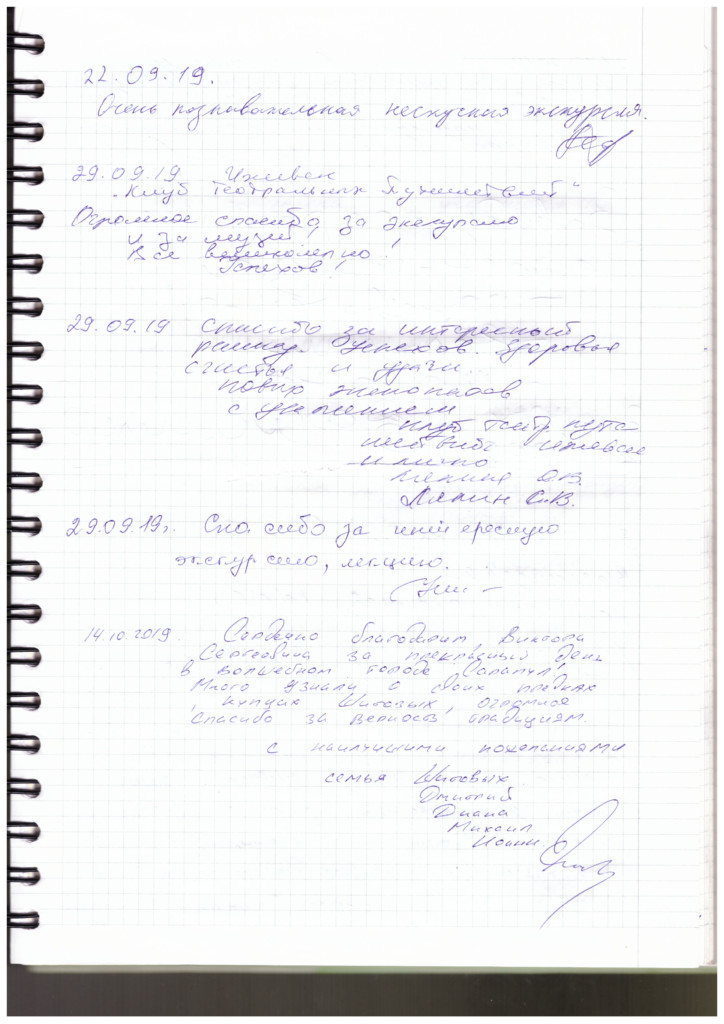 22.09.19.
Очень познавательная нескучная экскурсия.
29.09.19 Ижевск
"Клуб театральных путешествий"
Огромное спасибо за экскурсию
и за музей!
Все великолепно!
Успехов!
29.09.19 Спасибо за интересный
рассказ. Успехов. Здоровья
счастья и удачи.
новых экспонатов
с уважением
клуб театр. путе
шествий Ижевск
и лично
Лапин С.В.
29.09.19г. Спасибо за интересную
экскурсию, лекцию.
14.10.2019. Сердечно благодарим Виктора
Сергеевича за прекрасный день
в волшебном городе Сарапул!
Много узнали о своих предках
, купцах Шитовых, огромное
спасибо за верность традициям.
с наилучшими пожеланиями
семья Шитовых
Дмитрий
Диана
Михаил